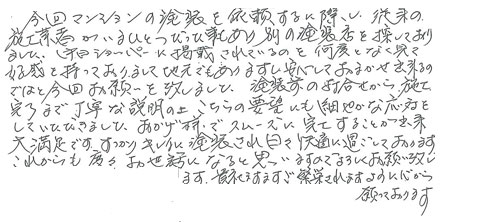 今回マンションの塗装を依頼するに際し、従来の
施工業者がいまひとつだった事もあり別の塗装店を探しており
ました。ショーパーに掲載されているのを何度となく見て
好感を持っておりまして地元でもありますし安心しておまかせ出来るの
ではと今回お願いを致しました。塗装前の打合せから施工
完了まで丁寧な説明の上こちらの要望にも細やかな応対を
していただきました。おかげ様でスムーズに完了することが出来
大満足です。すっかりキレイに塗装され日々快適に過ごしております
これからも度々お世話になると思いますのでよろしくお願い致し
ます。貴社ますますご繁栄されますように心から
願っております